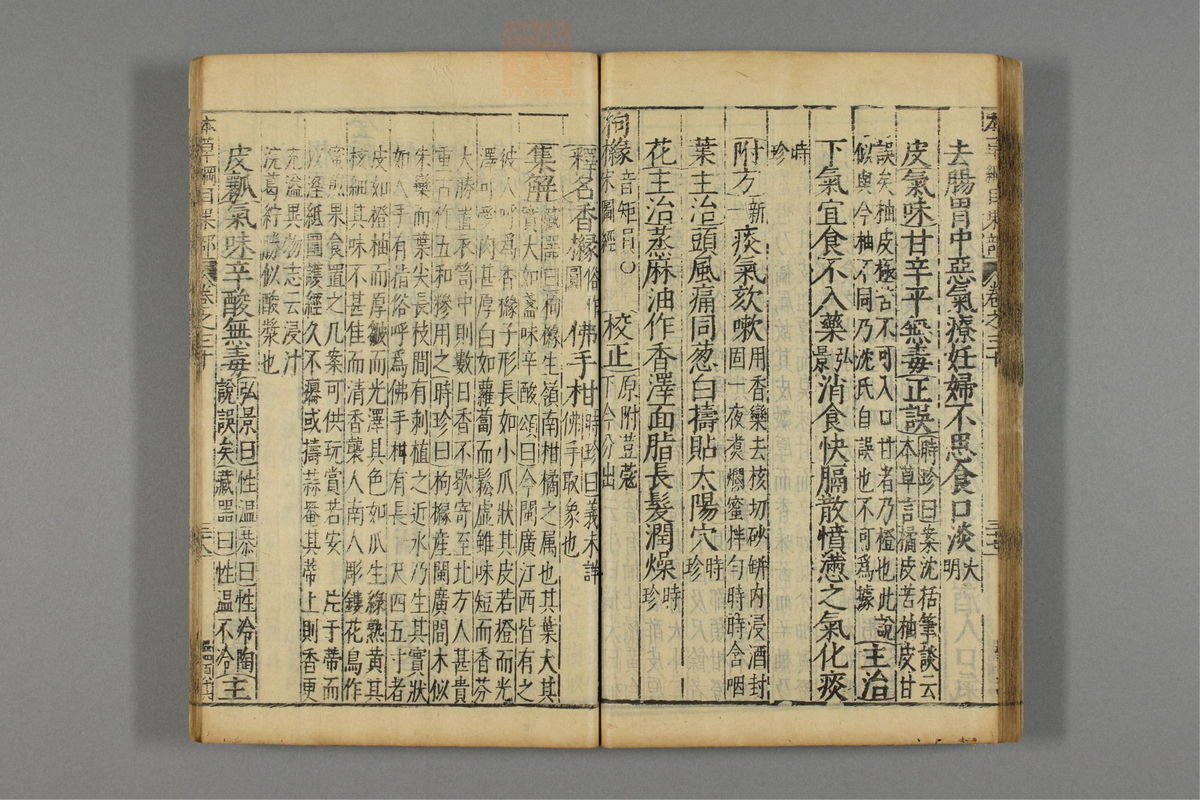 本草綱目果部 卷之三十
去腸胃中惡氣療妊婦不思食口淡 大明
皮氣味甘辛平無毒正誤 時珍曰案沈括筆談云本草言橘皮苦柚皮甘
誤矣柚皮極苦不可入口甘者乃橙也此說似與今柚不同乃沈氏自誤也不可爲據 主治
下氣宜食不入藥 弘景 消食快膈散憤懣之氣化痰
時珍
附方 新一 痰氣欬嗽 用香欒去核切砂缾内浸酒封固一夜煑爛蜜拌勻時時含咽
葉主治頭風痛同葱白擣貼太陽穴 時珍
花主治蒸麻油作香澤面脂長髮潤燥 時珍
枸櫞 音矩員○宋圖經 校正 原附荳蔻下今分出
釋名香櫞 俗作圓 佛手柑 時珍曰義未詳佛手取象也
集解 藏器曰枸櫞生嶺南柑橘之属也其葉大其實大如盞味辛酸頌曰今閩廣江西皆有之
彼人呼爲香櫞子形長如小瓜狀其皮若橙而光
澤可愛肉甚厚白如蘿蔔而鬆虛雖味短而香芬
大勝置衣笥中則數日香不歇寄至北方人甚貴
重古作五和糝用之時珍曰枸櫞産閩廣間木似
朱欒而葉尖長枝間有刺植之近水乃生其實狀
如人手有指俗呼爲佛手柑有長一尺四五寸者
皮如橙柚而厚皺而光澤其色如瓜生綠熟黄其
核細其味不甚佳而清香襲人南人雕鏤花鳥作
蜜煎果食置之几案可供玩賞若安芋片于蒂而
以溼紙圍護經久不癟或擣蒜罨其蒂上則香更
充溢異物志云浸汁浣葛紵勝似酸漿也
皮瓤氣味辛酸無毒 弘景曰性温恭曰性冷陶說誤矣藏器曰性温不冷 主
本草綱目果部 卷之三十